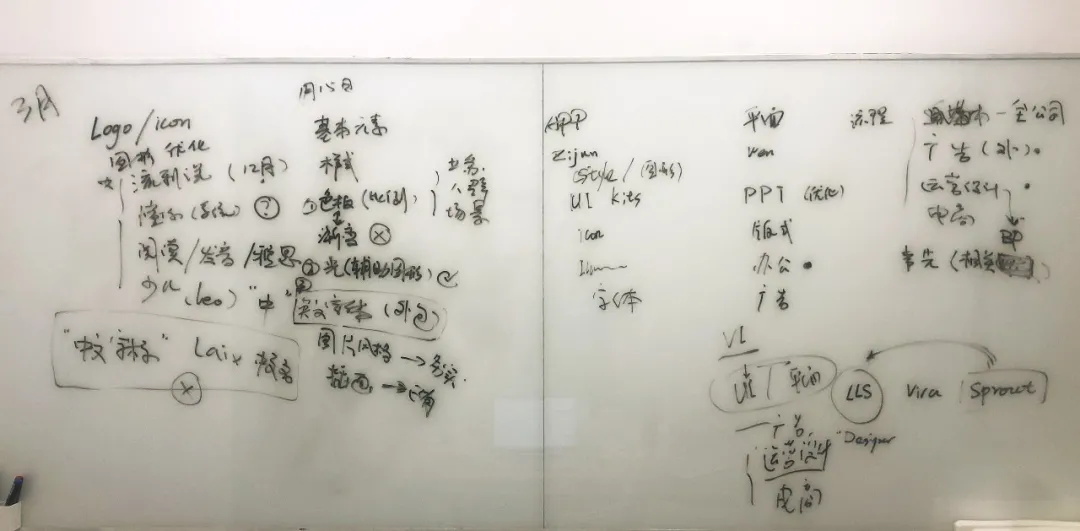 3月
Logo/icon
图形优化
流利说 (12月)
(系统) ?
阅读/发音/雅思
少儿 (leo) "中"
"中文字标" Laix 报告
基本元素
样式
① 色板 (比例)
渐变
② 光 (辅助图形)
英文字体 (外包)
图片风格 → 真实
插画 →
业务
人群
场景
APP
Zijun
Style / (图形)
UI kits
icon
字体
平面
ven
PPT (优化)
版式
办公
广告
流程
一 全公司
广告 (外)
运营设计
电商
BP
事先 (相关)
VI
UI 平面
LLS
Vira
Sprout
广告
运营设计
"Designer
电商